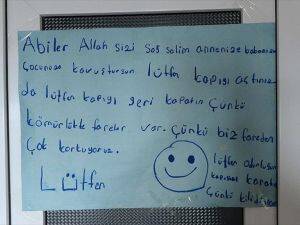 Abiler Allah sizi sağ salim annenize babanıza
çocunuza kavuştursun lütfen kapıyı açtınız
da lütfen kapıyı geri kapatın çünkü
kömürlükte fareler var. Çünkü biz fareden
Çok korkuyoruz.
Lütfen
lütfen
kapıyı kapatın
çünkü